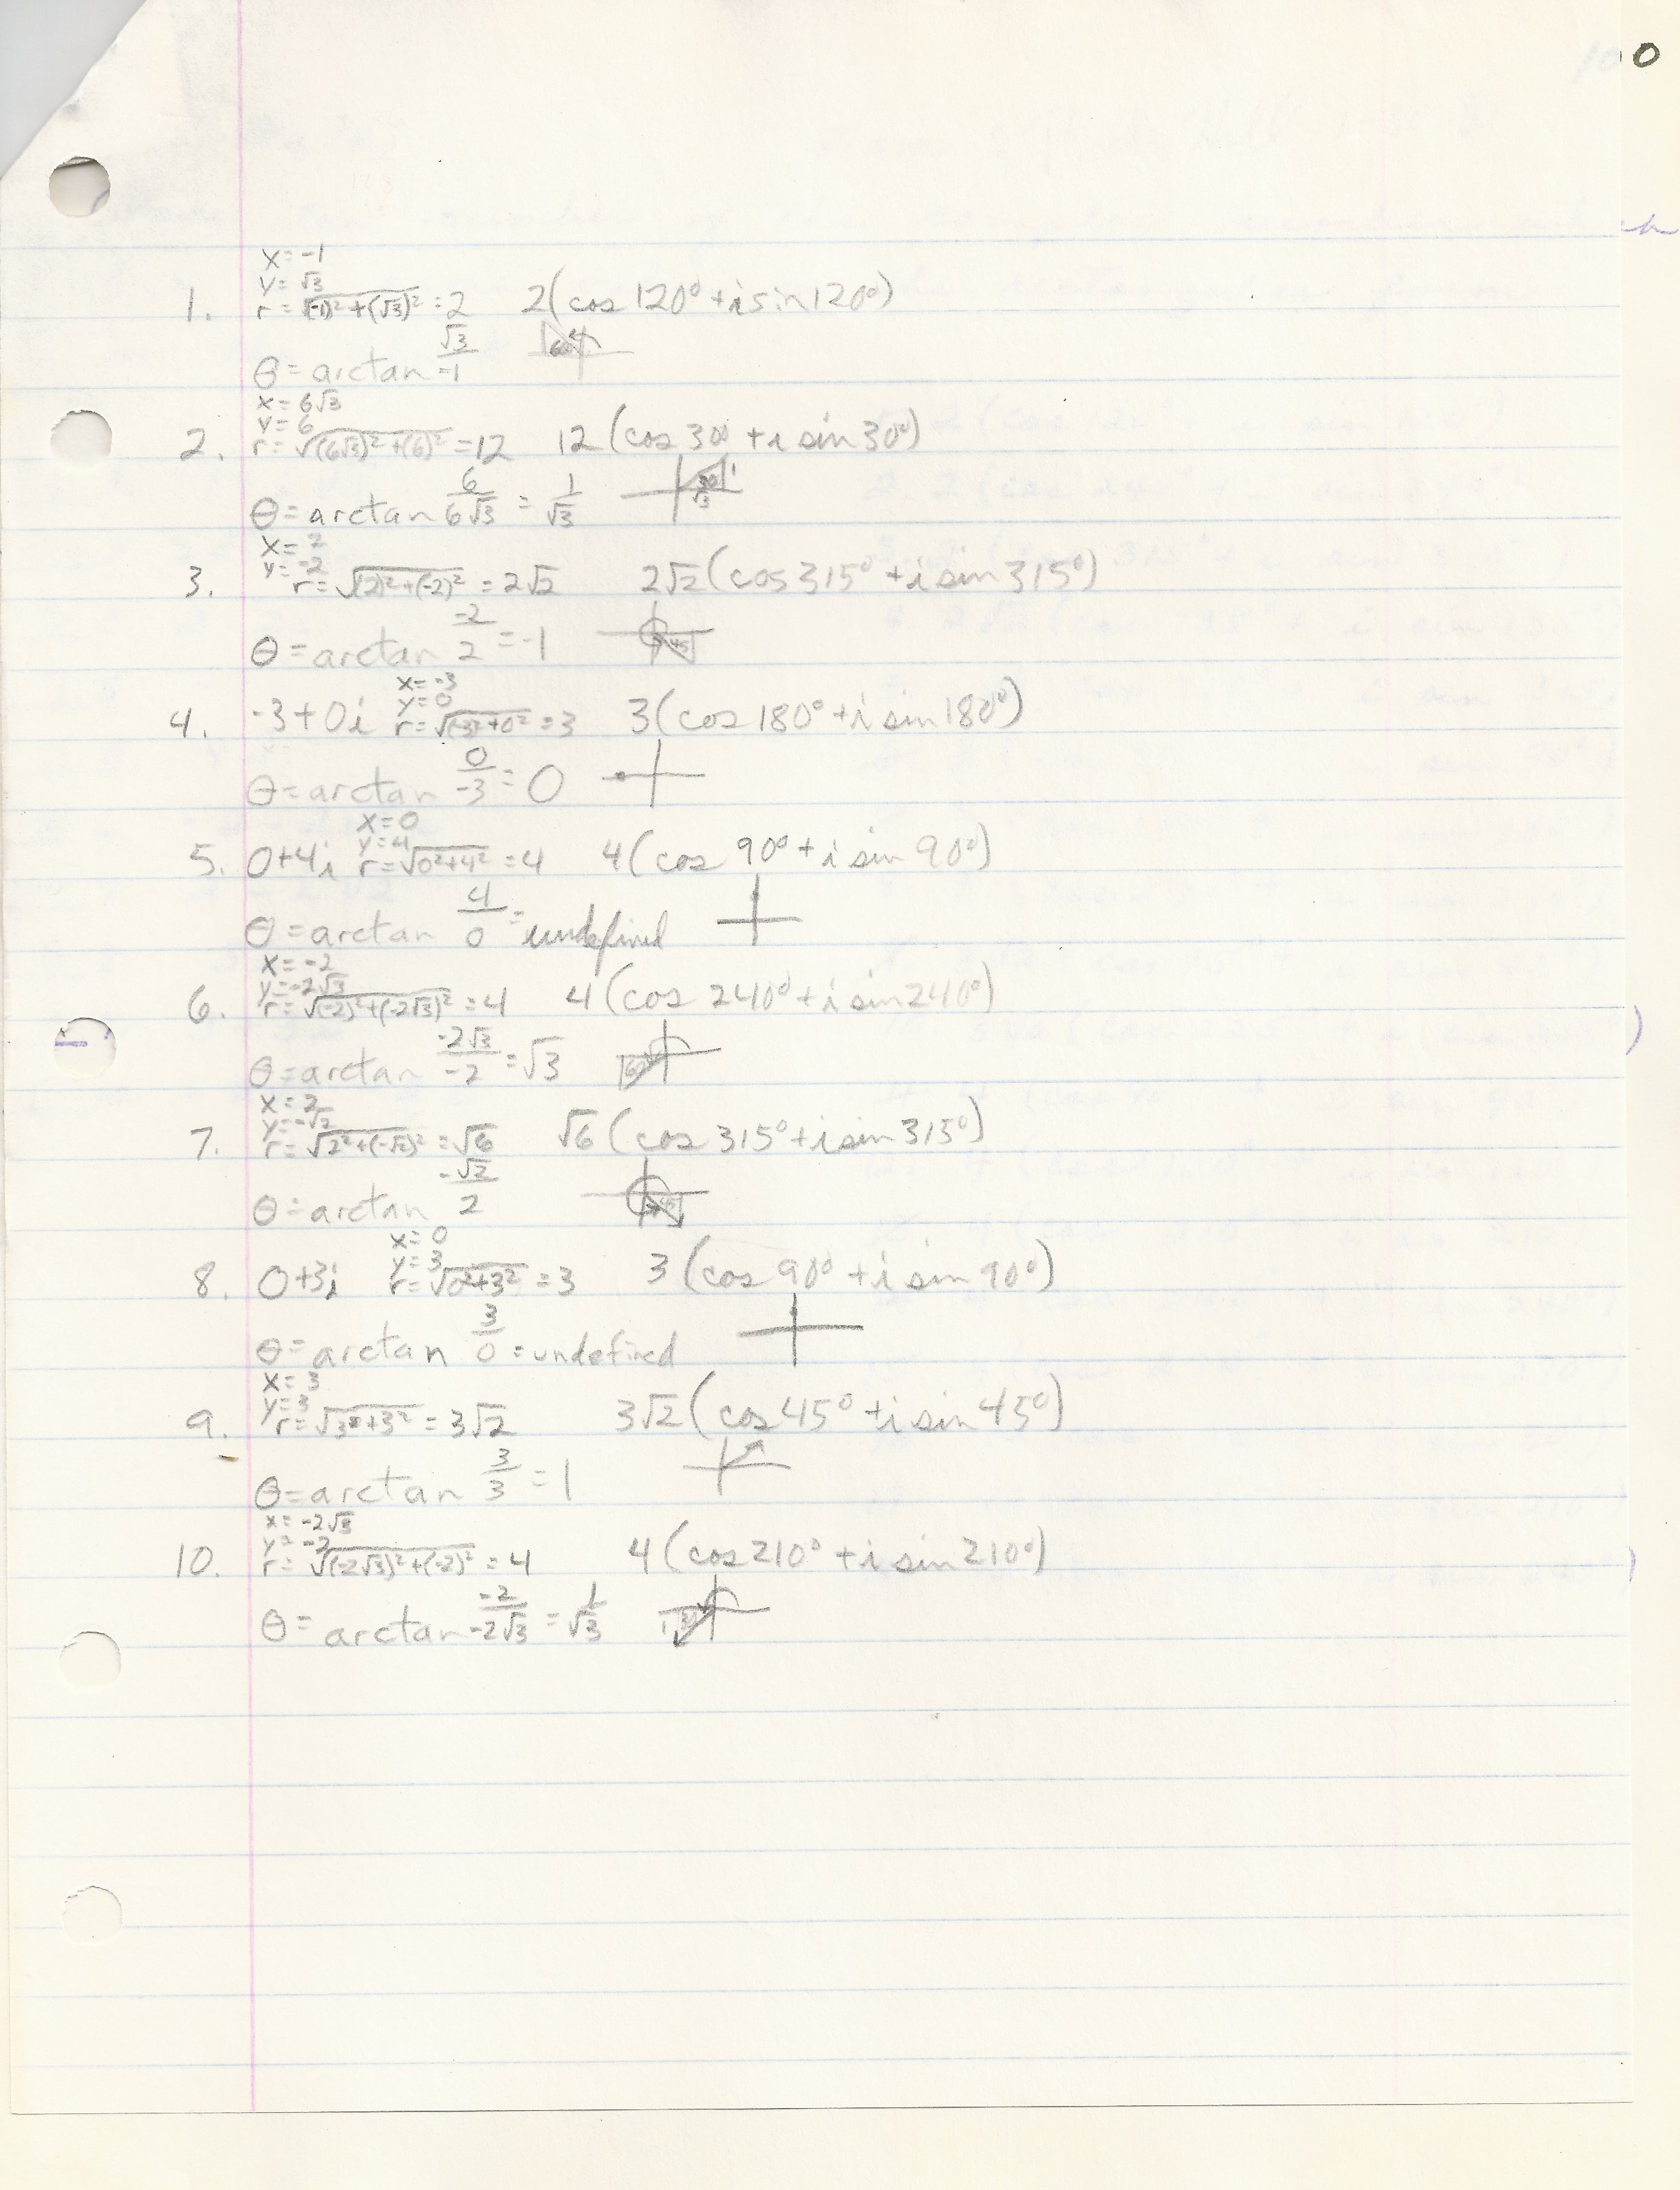 100
x = -1
y = √3
1. r = √(-1)² + (√3)² = 2 2(cos 120° + i sin 120°)
60
θ = arctan √3/-1
x = 6√3
y = 6
2. r = √(6√3)² + (6)² = 12 12 (cos 30° + i sin 30°)
30 1
√3
θ = arctan 6/6√3 = 1/√3
x = 2
y = -2
3. r = √(2)² + (-2)² = 2√2 2√2 (cos 315° + i sin 315°)
θ = arctan -2/2 = -1 45
x = -3
y = 0
4. -3 + 0i r = √(-3)² + 0² = 3 3 (cos 180° + i sin 180°)
θ = arctan 0/-3 = 0
x = 0
y = 4
5. 0 + 4i r = √0² + 4² = 4 4 (cos 90° + i sin 90°)
θ = arctan 4/0 = undefined
x = -2
y = -2√3
6. r = √(-2)² + (-2√3)² = 4 4 (cos 240° + i sin 240°)
θ = arctan -2√3/-2 = √3 60
x = 2
y = -√2
7. r = √2² + (-√2)² = √6 √6 (cos 315° + i sin 315°)
θ = arctan -√2/2 45
x = 0
y = 3
8. 0 + 3i r = √0² + 3² = 3 3 (cos 90° + i sin 90°)
θ = arctan 3/0 = undefined
x = 3
y = 3
9. r = √3² + 3² = 3√2 3√2 (cos 45° + i sin 45°)
θ = arctan 3/3 = 1
x = -2√3
y = -2
10. r = √(-2√3)² + (-2)² = 4 4 (cos 210° + i sin 210°)
θ = arctan -2/-2√3 = 1/√3